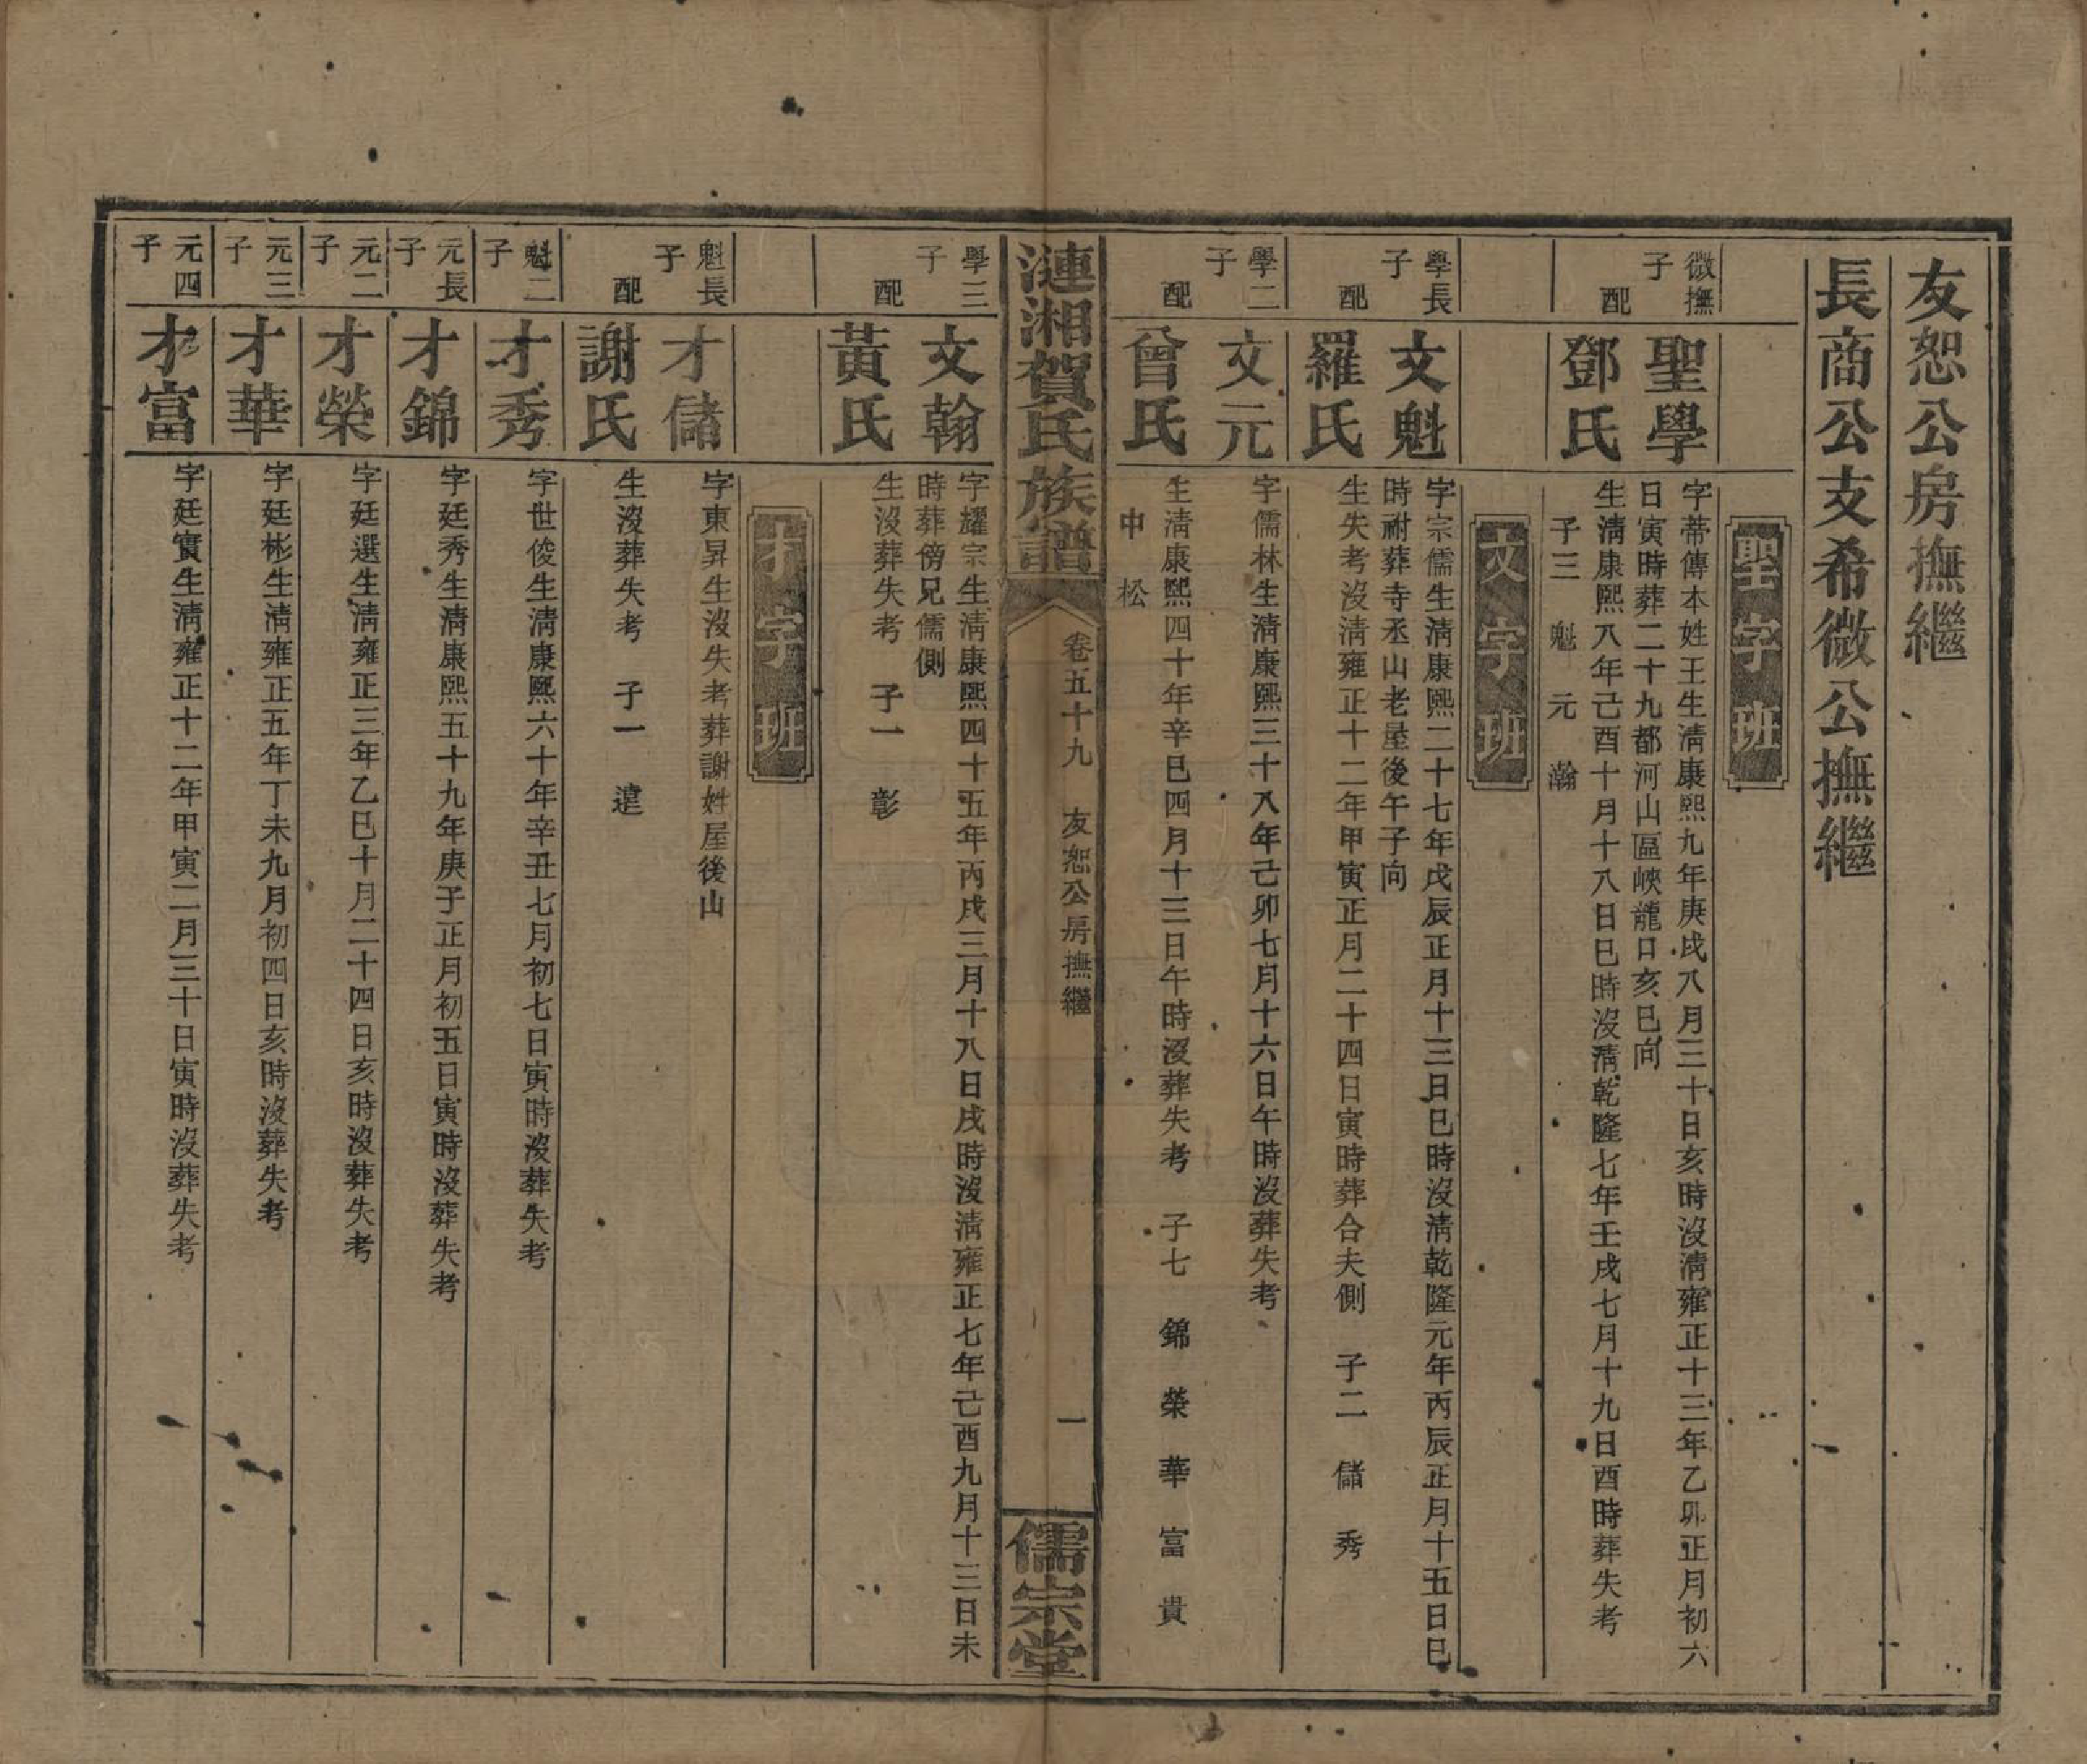 友恕公房撫繼
長商公支希微公撫繼
聖字班
微撫子
聖學
字蒂傳本姓王生清康熙九年庚戌八月三十日亥時沒清雍正十三年乙卯正月初六
日寅時葬二十九都河山區峽龍日亥巳向
配
鄧氏
生清康熙八年己酉十月十八日巳時沒清乾隆七年壬戌七月十九日酉時葬失考
子三 魁 元 瀚
文字班
學長子
文魁
字宗儒生清康熙二十七年戊辰正月十三日巳時沒清乾隆元年丙辰正月十五日巳
時祔葬寺丞山老屋後午子向
配
羅氏
生失考沒清雍正十二年甲寅正月二十四日寅時葬合夫側 子二 儲 秀
學二子
文元
字儒林生清康熙三十八年己卯七月十六日午時沒葬失考
配
曾氏
生清康熙四十年辛巳四月十三日午時沒葬失考 子七 錦 榮 華 富 貴
中 松
漣湘賀氏族譜
卷五十九 友恕公房撫繼
一
儒宗堂
學三子
文翰
字耀宗生清康熙四十五年丙戌三月十八日戌時沒清雍正七年己酉九月十三日未
時葬傍兄儒側
配
黃氏
生沒葬失考 子一 彰
才字班
魁長子
才儲
字東昇生沒失考葬謝姓屋後山
配
謝氏
生沒葬失考 子一 遠
魁二子
才秀
字世俊生清康熙六十年辛丑七月初七日寅時沒葬失考
元長子
才錦
字廷秀生清康熙五十九年庚子正月初五日寅時沒葬失考
元二子
才榮
字廷選生清雍正三年乙巳十月二十四日亥時沒葬失考
元三子
才華
字廷彬生清雍正五年丁未九月初四日亥時沒葬失考
元四子
才富
字廷實生清雍正十二年甲寅二月三十日寅時沒葬失考